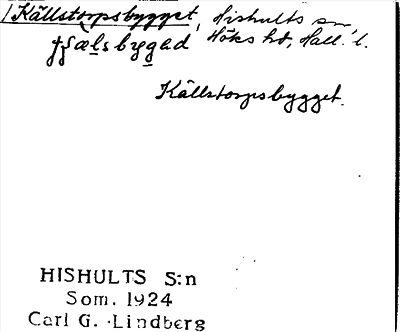 Källstorpsbygget, Hishults sn,
Höks hd, Hall. l.
Källstorpsbygget.
HISHULTS S:n
Som. 1924
Carl G. Lindberg